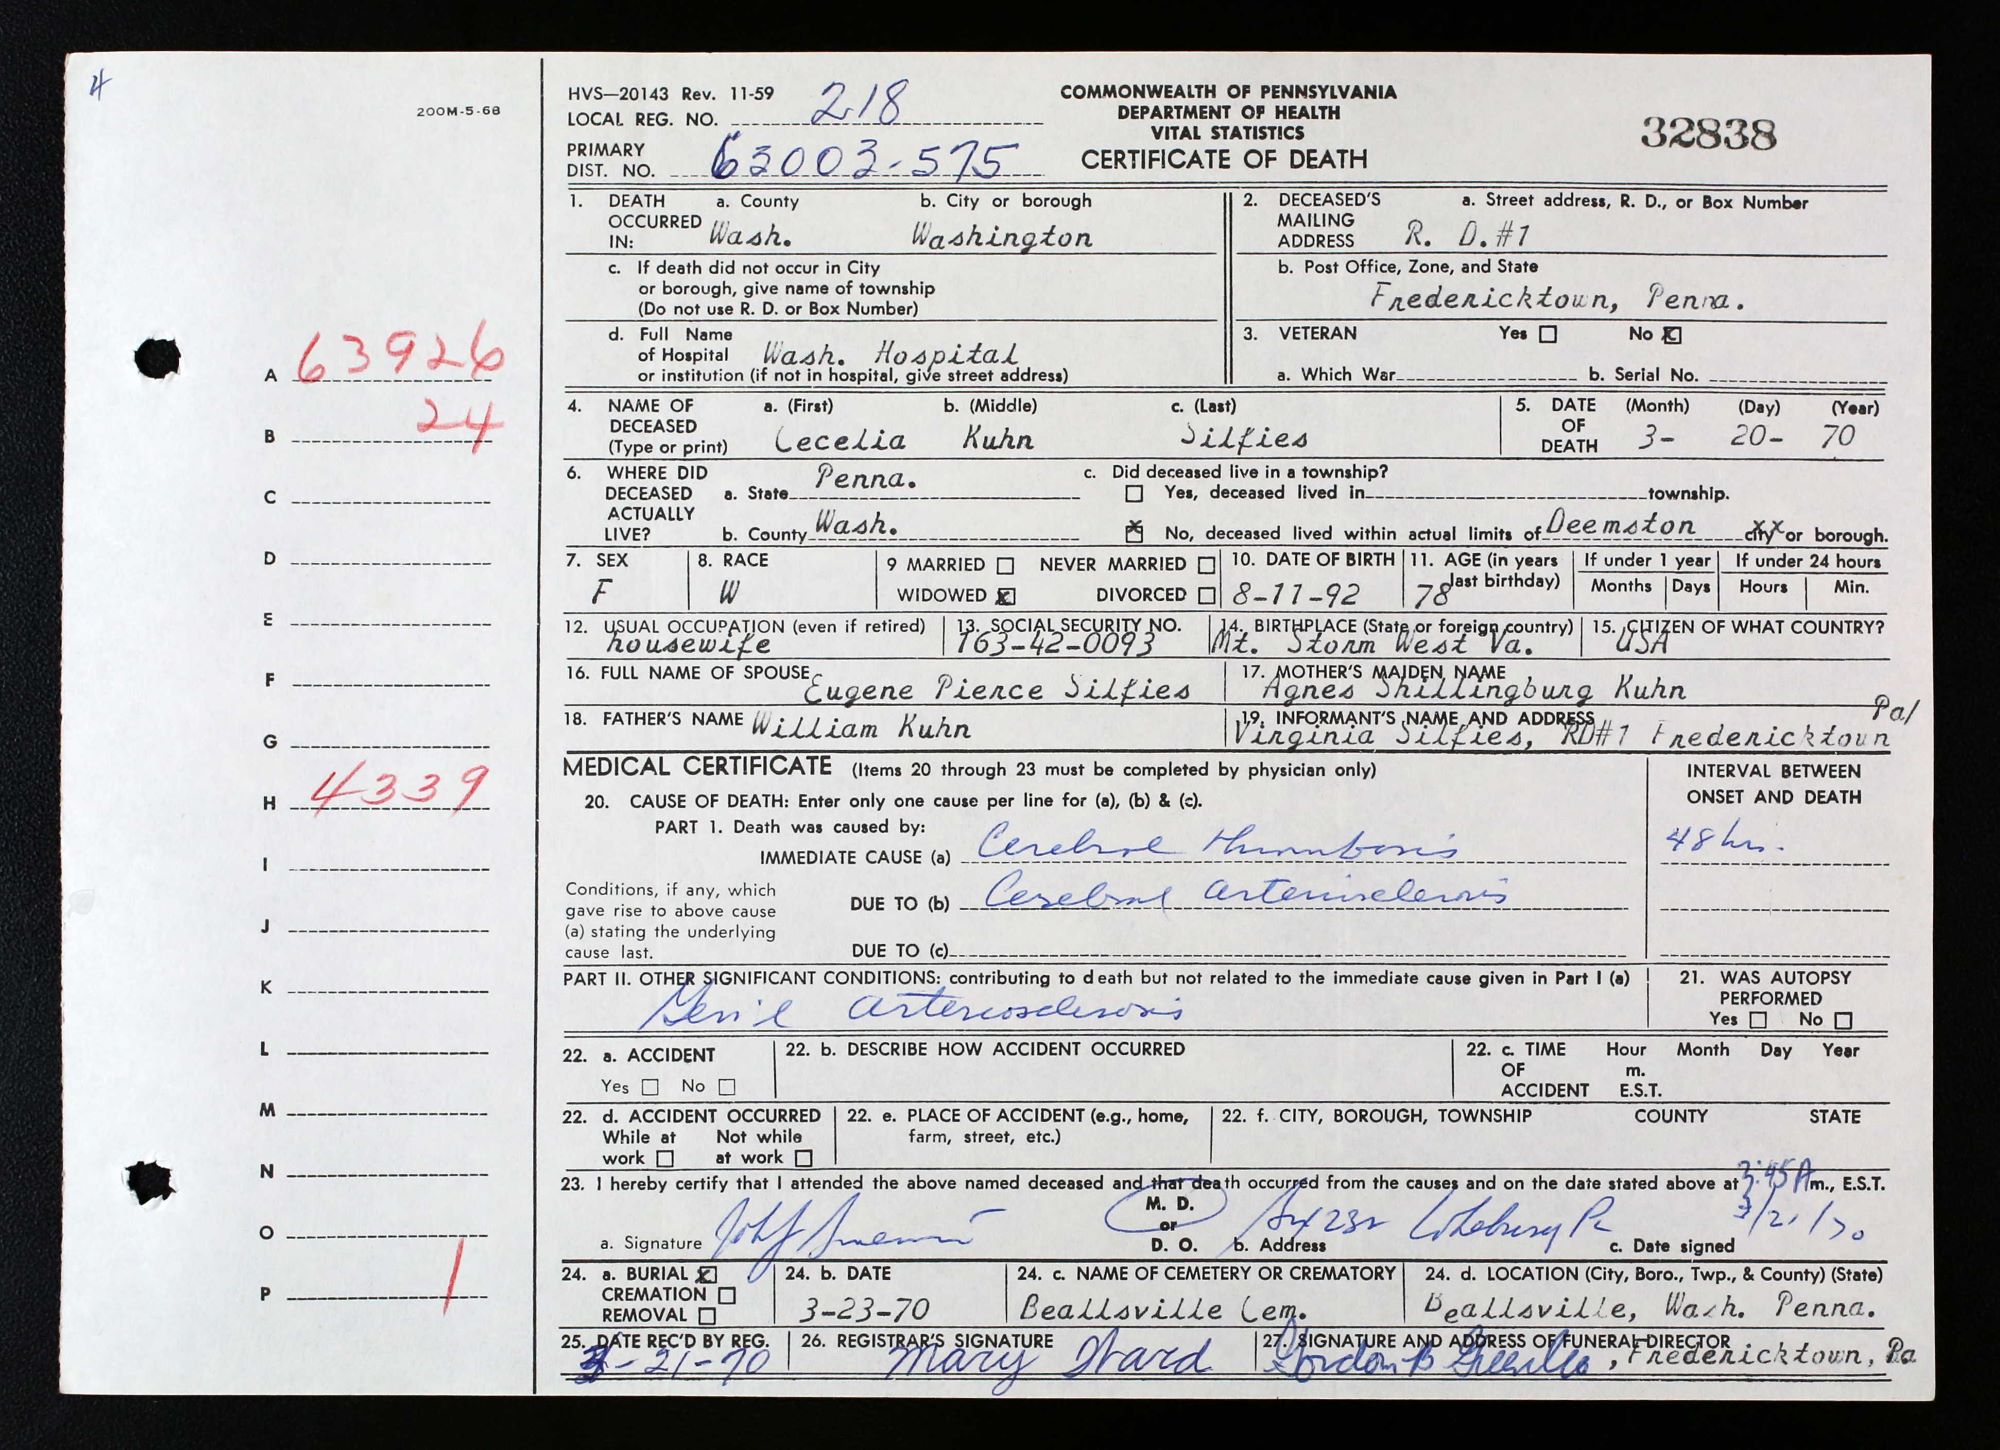 4
200M-5-68
A 63926
B 24
C
D
E
F
G
H 4339
I
J
K
L
M
N
O
P 1
HVS—20143 Rev. 11-59
LOCAL REG. NO. 218
PRIMARY
DIST. NO. 63003-575
COMMONWEALTH OF PENNSYLVANIA
DEPARTMENT OF HEALTH
VITAL STATISTICS
CERTIFICATE OF DEATH
32838
1. DEATH OCCURRED IN: a. County b. City or borough
Wash. Washington
c. If death did not occur in City
or borough, give name of township
(Do not use R. D. or Box Number)
d. Full Name
of Hospital Wash. Hospital
or institution (if not in hospital, give street address)
2. DECEASED'S MAILING ADDRESS a. Street address, R. D., or Box Number
R. D.#1
b. Post Office, Zone, and State
Fredericktown, Penna.
3. VETERAN Yes No X
a. Which War b. Serial No.
4. NAME OF DECEASED (Type or print) a. (First) b. (Middle) c. (Last)
Cecelia Kuhn Silfies
5. DATE OF DEATH (Month) (Day) (Year)
3- 20- 70
6. WHERE DID DECEASED ACTUALLY LIVE? a. State Penna.
b. County Wash.
c. Did deceased live in a township?
Yes, deceased lived in township.
X No, deceased lived within actual limits of Deemston city xx or borough.
7. SEX
F
8. RACE
W
9 MARRIED NEVER MARRIED
WIDOWED X DIVORCED
10. DATE OF BIRTH
8-11-92
11. AGE (in years last birthday)
78
If under 1 year
Months Days
If under 24 hours
Hours Min.
12. USUAL OCCUPATION (even if retired)
housewife
13. SOCIAL SECURITY NO.
163-42-0093
14. BIRTHPLACE (State or foreign country)
Mt. Storm West Va.
15. CITIZEN OF WHAT COUNTRY?
USA
16. FULL NAME OF SPOUSE Eugene Pierce Silfies
17. MOTHER'S MAIDEN NAME
Agnes Shillingburg Kuhn
18. FATHER'S NAME William Kuhn
19. INFORMANT'S NAME AND ADDRESS
Virginia Silfies, RD#1 Fredericktown Pa/
MEDICAL CERTIFICATE (Items 20 through 23 must be completed by physician only)
INTERVAL BETWEEN
ONSET AND DEATH
20. CAUSE OF DEATH: Enter only one cause per line for (a), (b) & (c).
PART 1. Death was caused by:
IMMEDIATE CAUSE (a) Cerebral Thrombosis 48 hrs.
Conditions, if any, which
gave rise to above cause
(a) stating the underlying
cause last.
DUE TO (b) Cerebral arteriosclerosis
DUE TO (c)
PART II. OTHER SIGNIFICANT CONDITIONS: contributing to death but not related to the immediate cause given in Part I (a)
arteriosclerosis
21. WAS AUTOPSY
PERFORMED
Yes No
22. a. ACCIDENT
Yes No
22. b. DESCRIBE HOW ACCIDENT OCCURRED
22. c. TIME OF ACCIDENT Hour Month Day Year
m.
E.S.T.
22. d. ACCIDENT OCCURRED
While at work Not while at work
22. e. PLACE OF ACCIDENT (e.g., home,
farm, street, etc.)
22. f. CITY, BOROUGH, TOWNSHIP COUNTY STATE
23. I hereby certify that I attended the above named deceased and that death occurred from the causes and on the date stated above at 3:45 A m., E.S.T.
a. Signature
M. D.
or
D. O.
b. Address
c. Date signed 3/21/70
24. a. BURIAL X
CREMATION
REMOVAL
24. b. DATE
3-23-70
24. c. NAME OF CEMETERY OR CREMATORY
Beallsville Cem.
24. d. LOCATION (City, Boro., Twp., & County) (State)
Beallsville, Wash. Penna.
25. DATE REC'D BY REG.
3-21-70
26. REGISTRAR'S SIGNATURE
Mary Ward
27. SIGNATURE AND ADDRESS OF FUNERAL DIRECTOR
Gordon B , Fredericktown, Pa